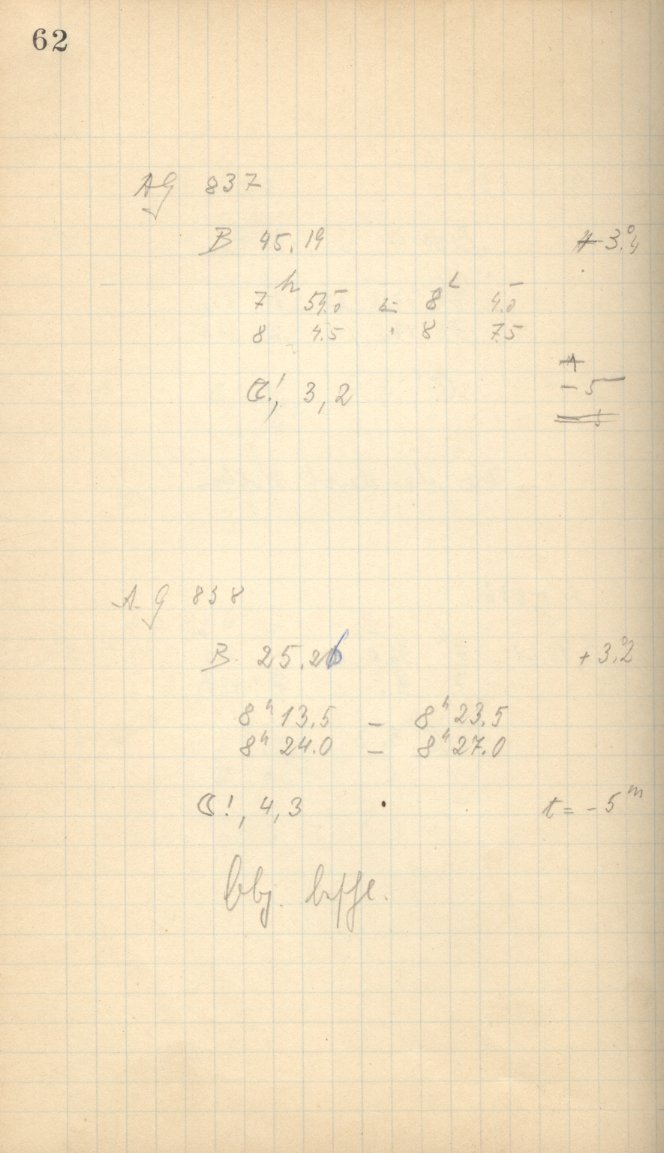 62
AG 837
B 45.19 + 3°.4
7h 54.0 – 8h 4.0
8 4.5 – 8 7.5
☾!, 3, 2 – 5
AG 838
B 25.26 + 3°.2
8h 13.5 – 8h 23.5
8h 24.0 – 8h 27.0
☾!, 4, 3 t = – 5m
Obj. beschl.